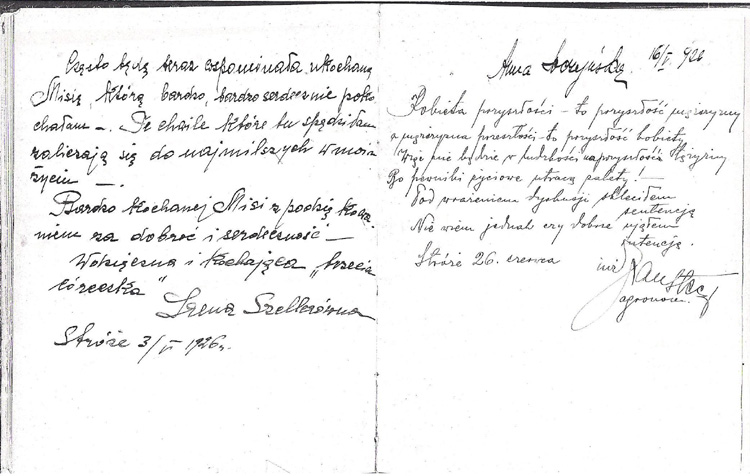 Często będę teraz wspominała Kochaną
Misię, którą bardzo, bardzo serdecznie poko
chałam –. Te chwile które tu spędziłam
zaliczają się do najmilszych w moim
życiu –.
Bardzo Kochanej Misi z podzię kowa
niem za dobroć i serdeczność –
Wdzięczna i Kochająca „trzecia
córeczka"
Irena Szellerówna
Stróże 3/VI 1926 r.
Anna 16/V 920
Kobieta przyszłości – to przyszłość mężczyzny
a mężczyzna przeszłości – to przyszłość kobiety
Więc nie będzie w ludzkości na przyszłość Mężczyzny
Bo pierwiki życiowe utracą zalety! –
Pod wrażeniem dysputy skleciłem
sentencję
Nie wiem jednak czy dobrze ująłem
intencję.
Stróże 26. czerwca
inż Jan
agronom.